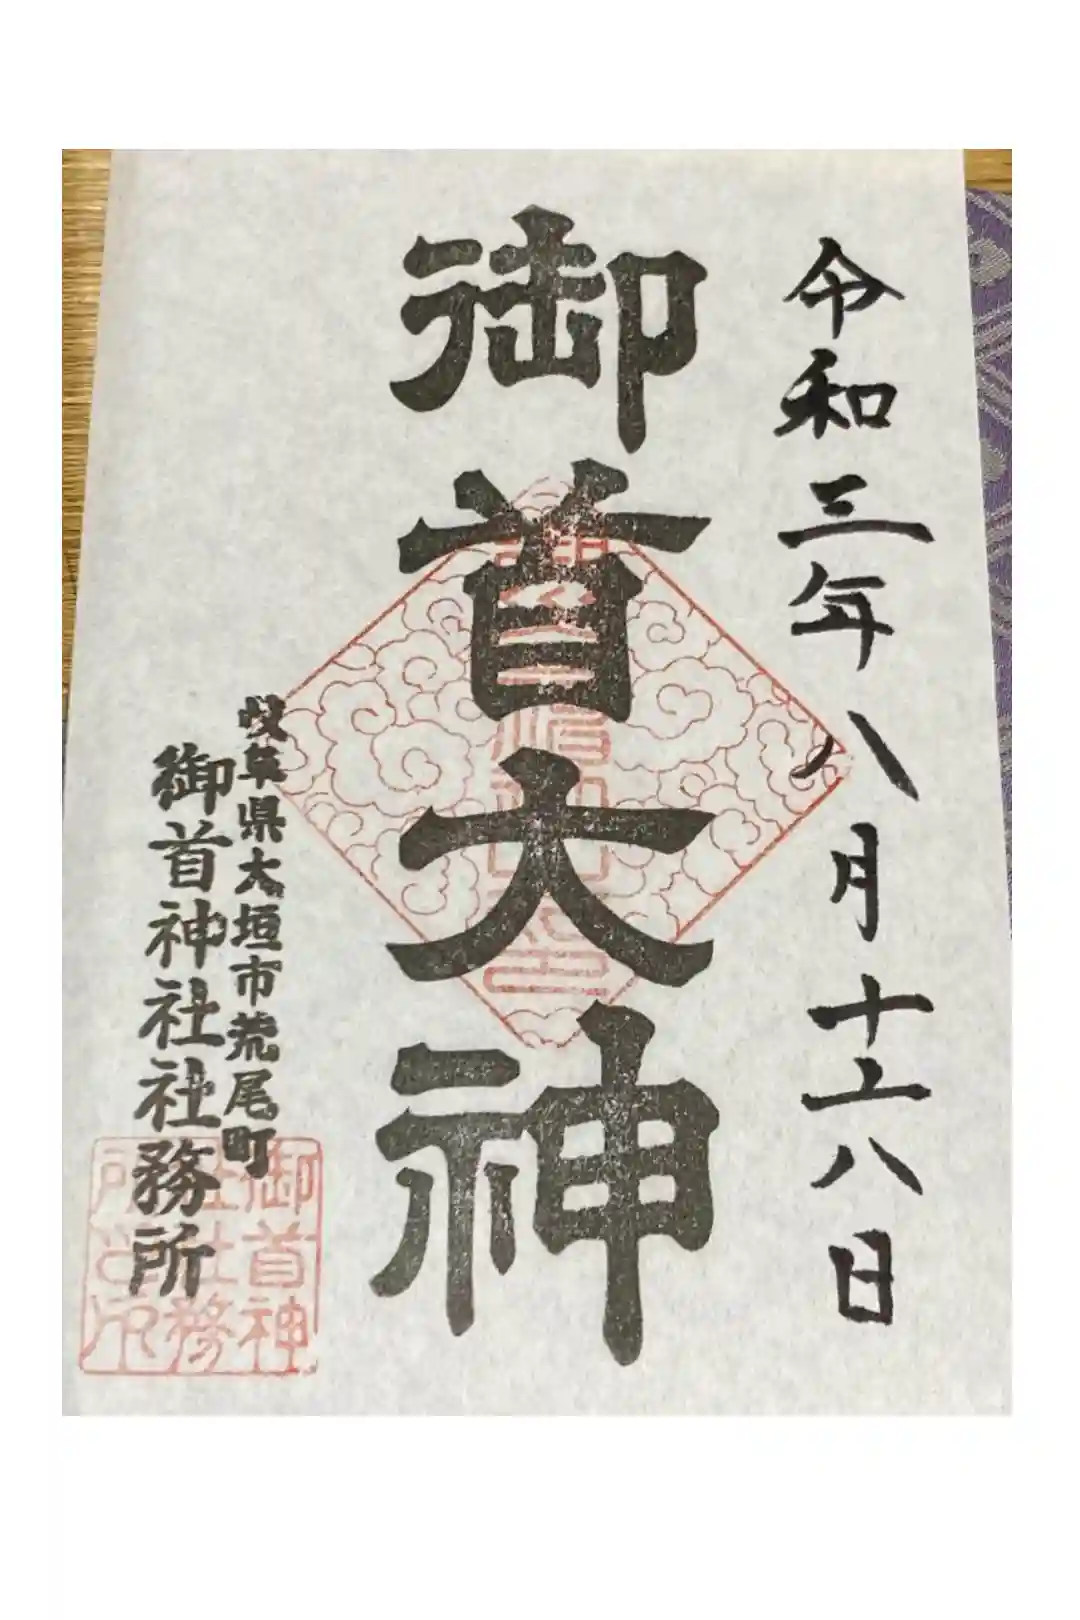 令和三年八月十六日
御首大神
岐阜県大垣市荒尾町
御首神社社務所
御首神
社社務
所之印